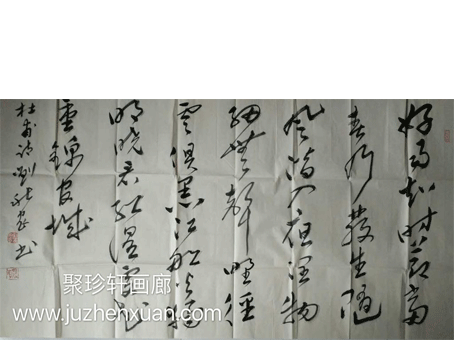 好雨知时节當
春乃發生隨
风潜入夜润物
细無聲野径
雲俱黑江船火独
明晓看红湿處花
重錦官城
杜甫诗 書
聚珍轩画廊
www.juzhenxuan.com